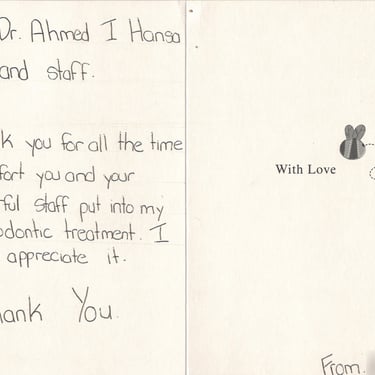 Dr. Ahmed I Hansa
and staff.
k you for all the time
fort you and your
ful staff put into my
odontic treatment. I
appreciate it.
hank You.
With Love
From.